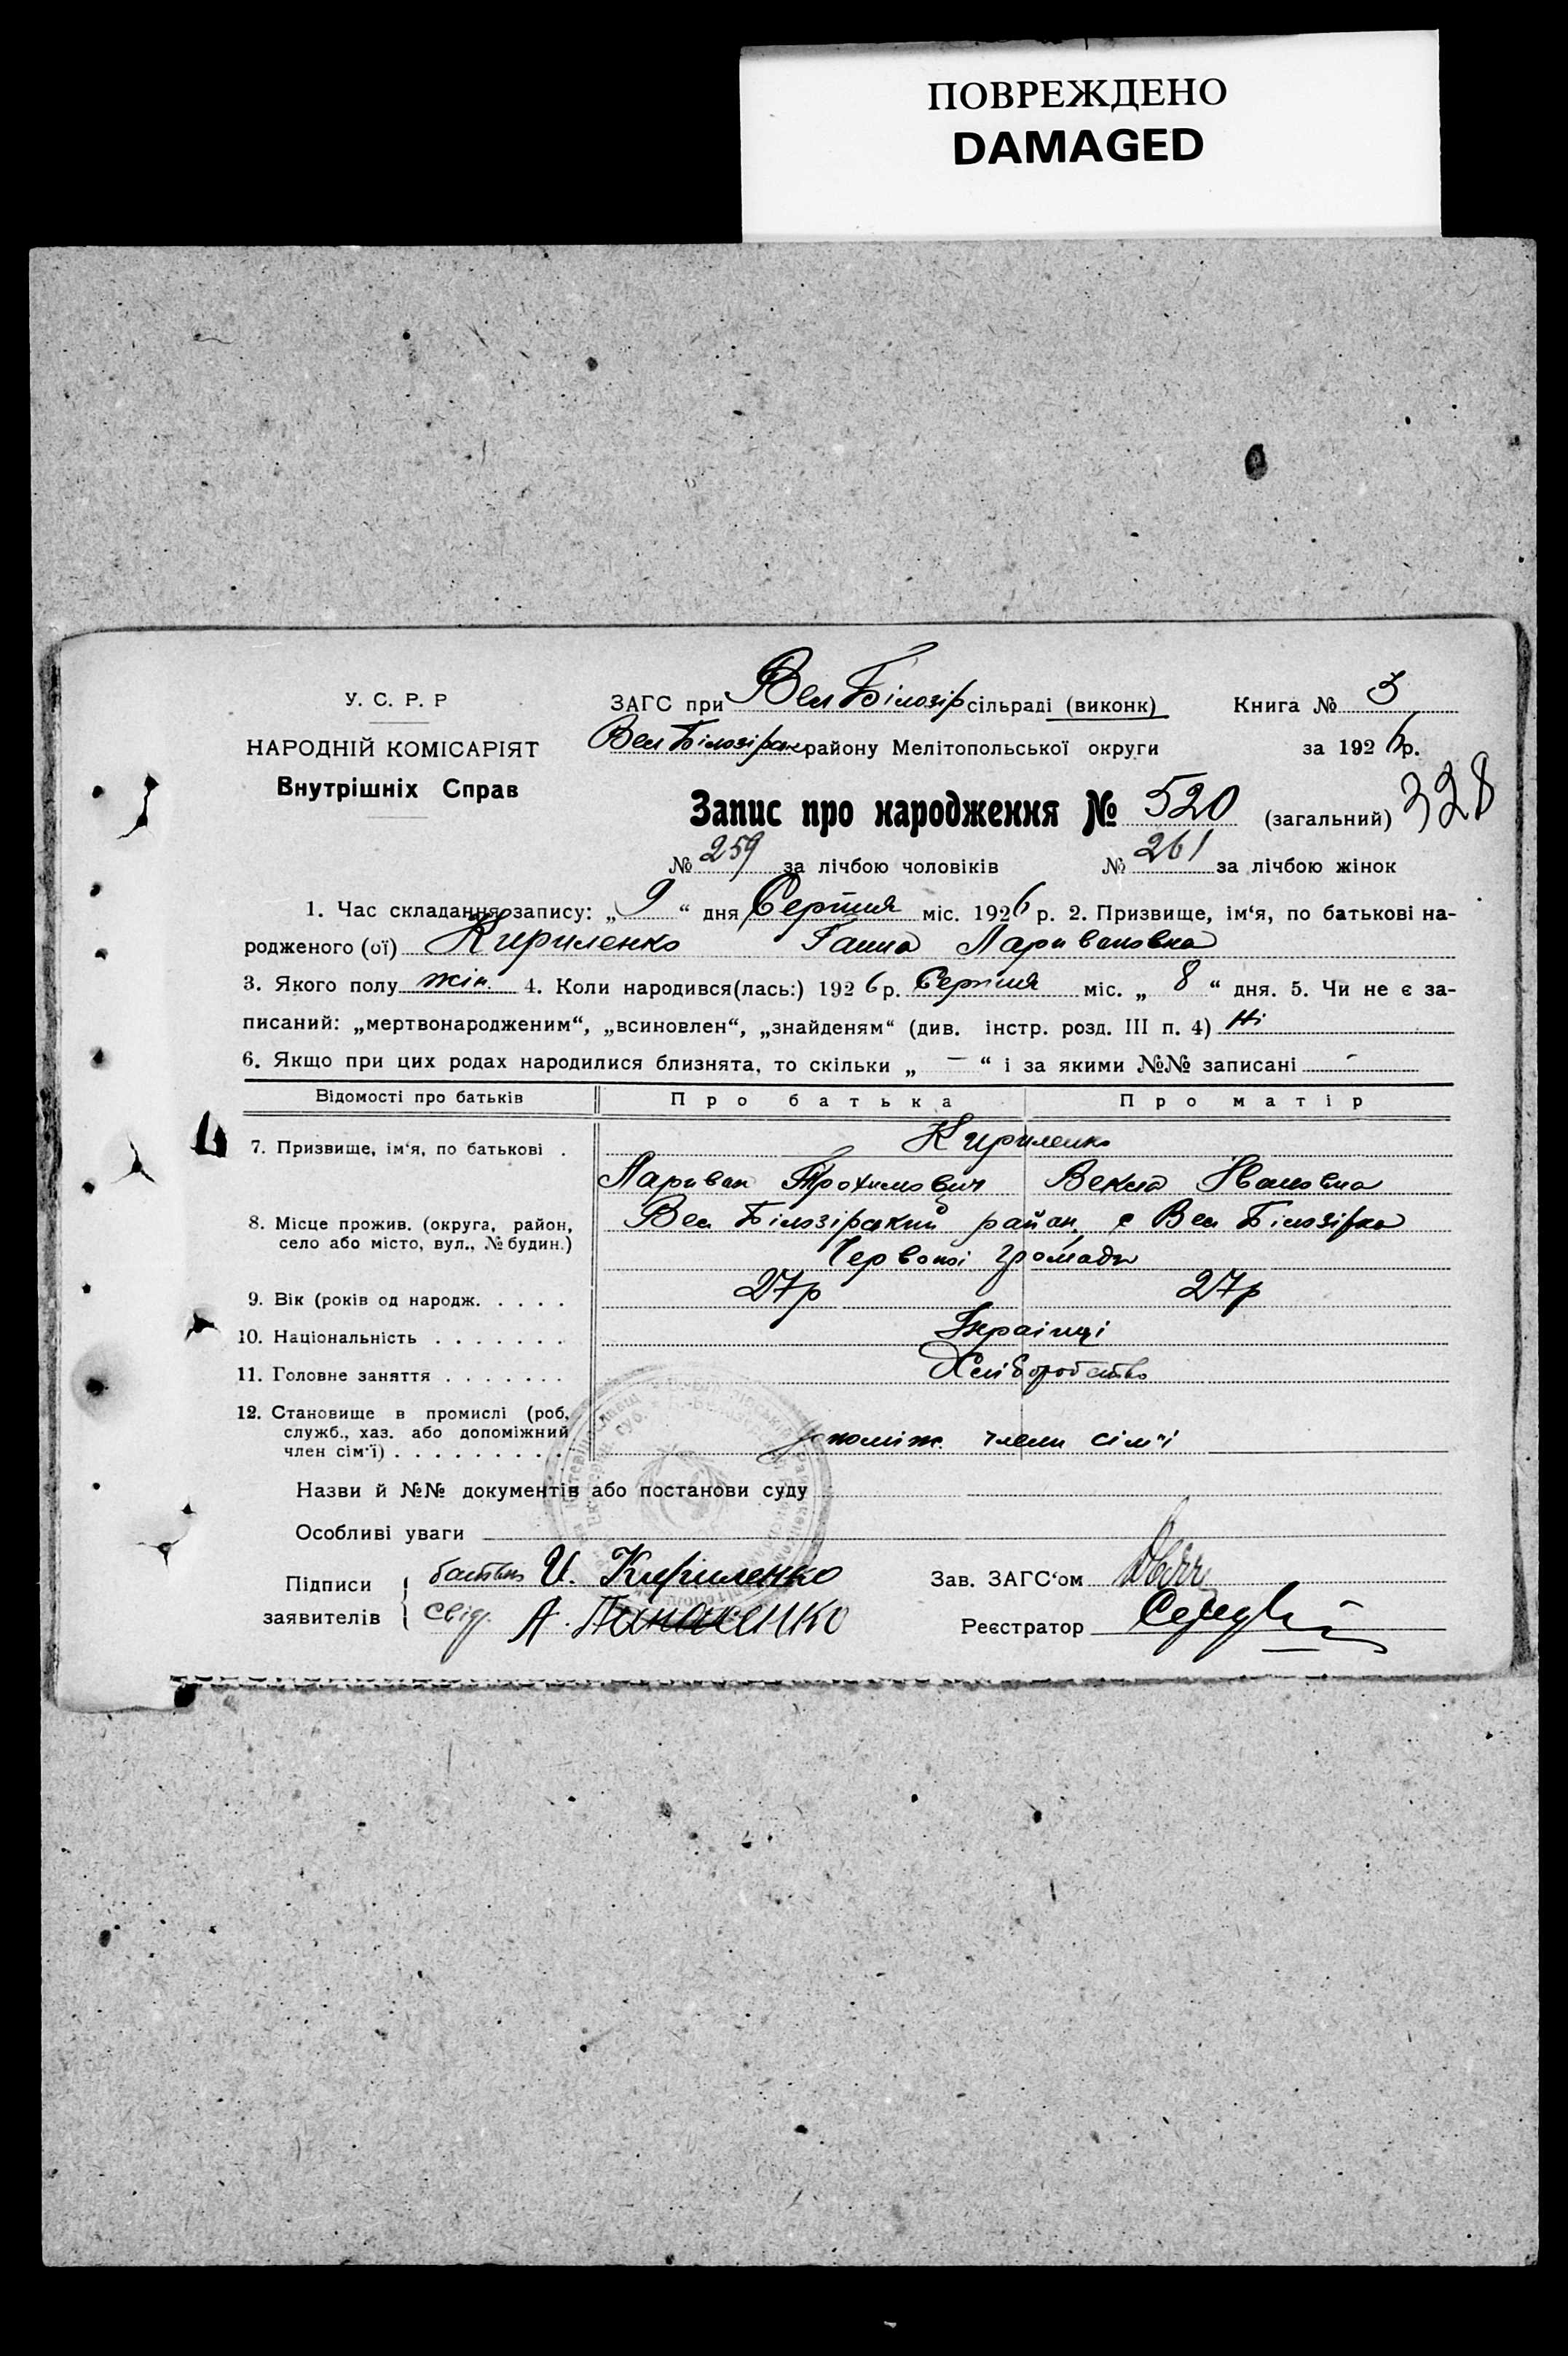 ПОВРЕЖДЕНО
DAMAGED
У. С. Р. Р
НАРОДНІЙ КОМІСАРІЯТ
Внутрішніх Справ
ЗАГС при Вел Білозір сільраді (виконк) Книга № 3
Вел Білозірськ району Мелітопольської округи за 1926 р.
Запис про народження № 520 (загальний) 328
№ 259 за лічбою чоловіків № 261 за лічбою жінок
1. Час складання запису: „ 9 “ дня Серпня міс. 1926 р. 2. Призвище, ім‘я, по батькові на-
родженого (ої) Кириленко Ганна Ларивановна
3. Якого полу жін. 4. Коли народився(лась:) 1926 р. Серпня міс. „ 8 “ дня. 5. Чи не є за-
писаний: „мертвонародженим“, „всиновлен“, „знайденям“ (див. інстр. розд. III п. 4) Ні
6. Якщо при цих родах народилися близнята, то скільки „ — “ і за якими №№ записані -
Відомості про батьків Про батька Про матір
7. Призвище, ім‘я, по батькові . Кириленко
Лариван Трохимович Векла Ивановна
8. Місце прожив. (округа, район, село або місто, вул., № будин.) Вел Білозірський район, с Вел Білозірка
Червоної громади
9. Вік (років од народж. . . . . 27р 27р
10. Національність . . . . . . . Українці
11. Головне заняття . . . . . . . Хліборобство
12. Становище в промислі (роб, служб., хаз. або допоміжний член сім‘ї) . . . . . . . . . допоміж члени сім‘ї
Назви й №№ документів або постанови суду
Особливі уваги
Підписи заявителів { батько И. Кириленко Зав. ЗАГС‘ом
свід. А. Реєстратор